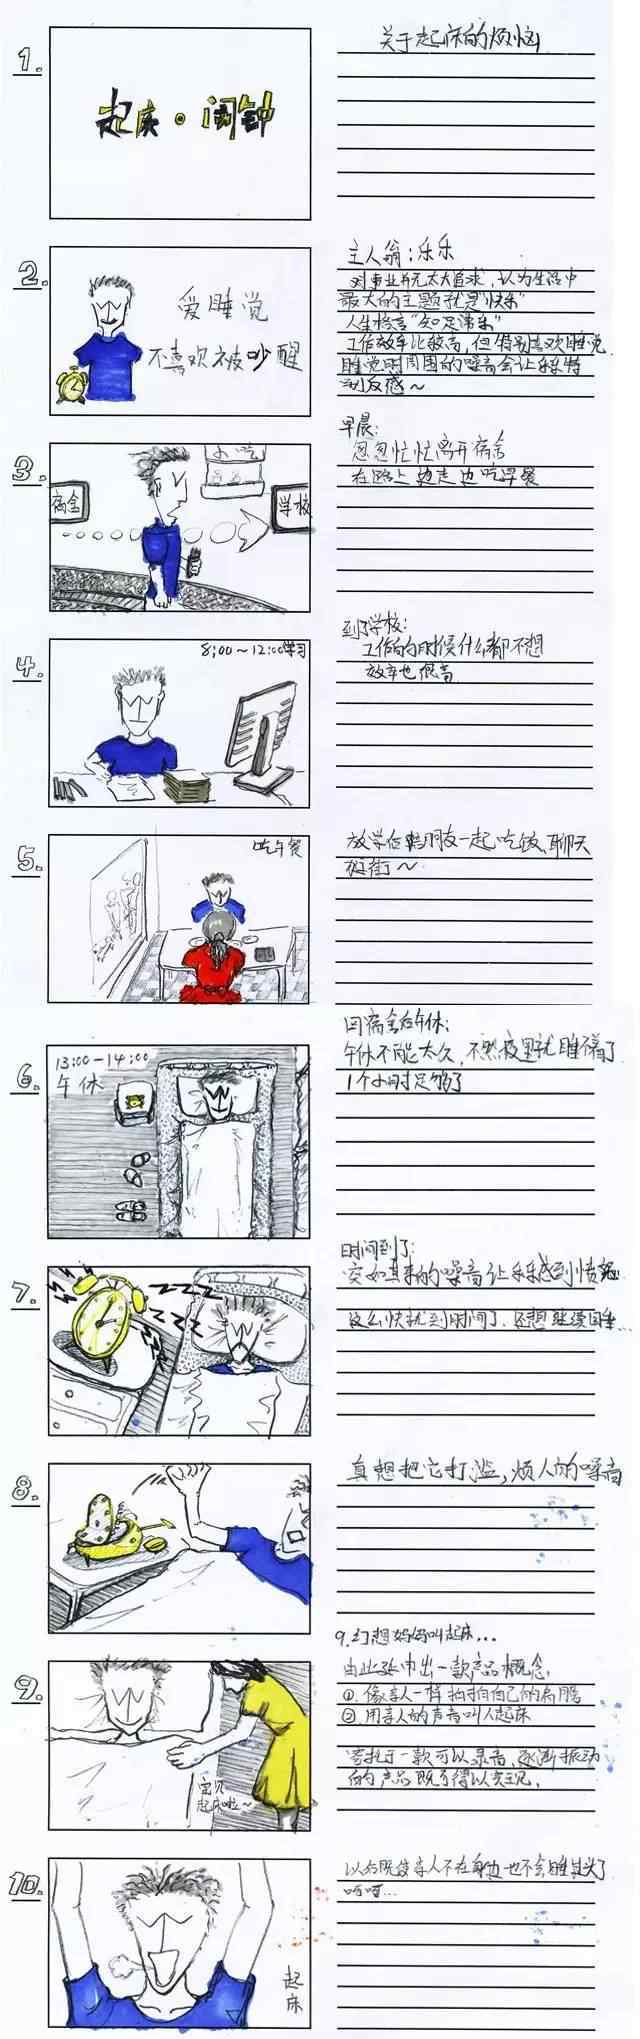 1.
起床·闹钟
关于起床的烦恼
2.
爱睡觉
不喜欢被吵醒
主人翁:乐乐
对事业并无太大追求,认为生活中
最大的主题就是“快乐”
人生格言“知足常乐”
工作效率比较高,但特别喜欢睡觉
睡觉时周围的噪音会让乐乐特
别反感~
3.
宿舍
小吃
学校
早晨:
匆匆忙忙离开宿舍
在路上边走边吃早餐
4.
8:00~12:00学习
到了学校:
工作的时候什么都不想
效率也很高
5.
吃午餐
放学后跟朋友一起吃饭、聊天
逛街~
6.
13:00-14:00
午休
回宿舍后午休:
午休不能太久,不然夜里就睡不着了
1个小时足够了
7.
时间到了:
突如其来的噪音让乐乐感到愤怒
这么快就到时间了,还想继续睡...
8.
真想把它打滥,烦人的噪音
9.
宝贝
起床啦~
9.幻想妈妈叫起床...
由此延申出一款产品概念
①.像亲人一样拍拍自己的肩膀
②.用亲人的声音叫人起床
寄托于一款可以录音,逐渐振动
的产品既可得以实现.
10.
起床
以后既使亲人不在身边也不会睡过头了
呵呵...